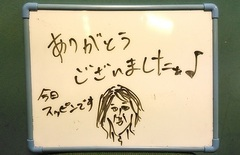 ありがとう
ございましたぁ♪
今日
スッピンです